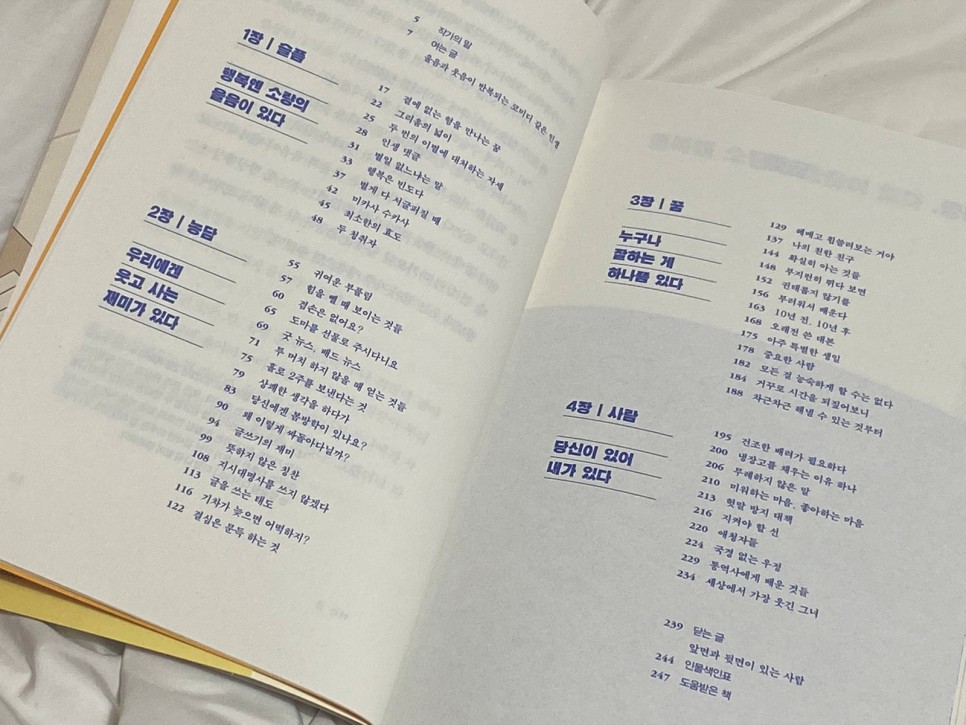 5 작가의 말
7 여는 글
울음과 웃음이 반복되는 코미디 같은 인생
1장 | 슬픔
행복엔 소량의
울음이 있다
17 곁에 없는 형을 만나는 꿈
22 그리움의 넓이
25 두 번의 이별에 대처하는 자세
28 인생 댓글
31 별일 없느냐는 말
33 행복은 빈도다
37 별게 다 서글퍼질 때
42 미카사 수카사
45 최소한의 효도
48 두 청취자
2장 | 농담
우리에겐
웃고 사는
재미가 있다
55 귀여운 부풀림
57 힘을 뺄 때 보이는 것들
60 겸손은 없어요?
65 도마를 선물로 주시다니요
69 굿 뉴스, 배드 뉴스
71 투 머치 하지 않을 때 얻는 것들
75 홀로 2주를 보낸다는 것
79 상쾌한 생각을 하다가
83 당신에겐 봄방학이 있나요?
90 왜 이렇게 싸돌아다닐까?
94 글쓰기의 재미
99 뜻하지 않은 칭찬
108 지시대명사를 쓰지 않겠다
113 글을 쓰는 태도
116 기차가 늦으면 어떡하지?
122 결심은 문득 하는 것
3장 | 꿈
누구나
잘하는 게
하나쯤 있다
129 헤매고 휩쓸려보는 거야
137 나의 친한 친구
144 확실히 아는 것들
148 부지런히 뛰다 보면
152 권태롭지 않기를
156 부러워서 배운다
163 10년 전, 10년 후
168 오래전 쓴 대본
175 아주 특별한 생일
178 중요한 사람
182 모든 걸 능숙하게 할 수는 없다
184 거꾸로 시간을 되짚어보니
188 차근차근 해낼 수 있는 것부터
4장 | 사람
당신이 있어
내가 있다
195 건조한 배려가 필요하다
200 냉장고를 채우는 이유 하나
206 무례하지 않은 말
210 미워하는 마음, 좋아하는 마음
213 헛말 방지 대책
216 지켜야 할 선
220 애청자들
224 국경 없는 우정
229 통역사에게 배운 것들
234 세상에서 가장 웃긴 그녀
239 닫는 글
앞면과 뒷면이 있는 사람
244 인물색인표
247 도움받은 책